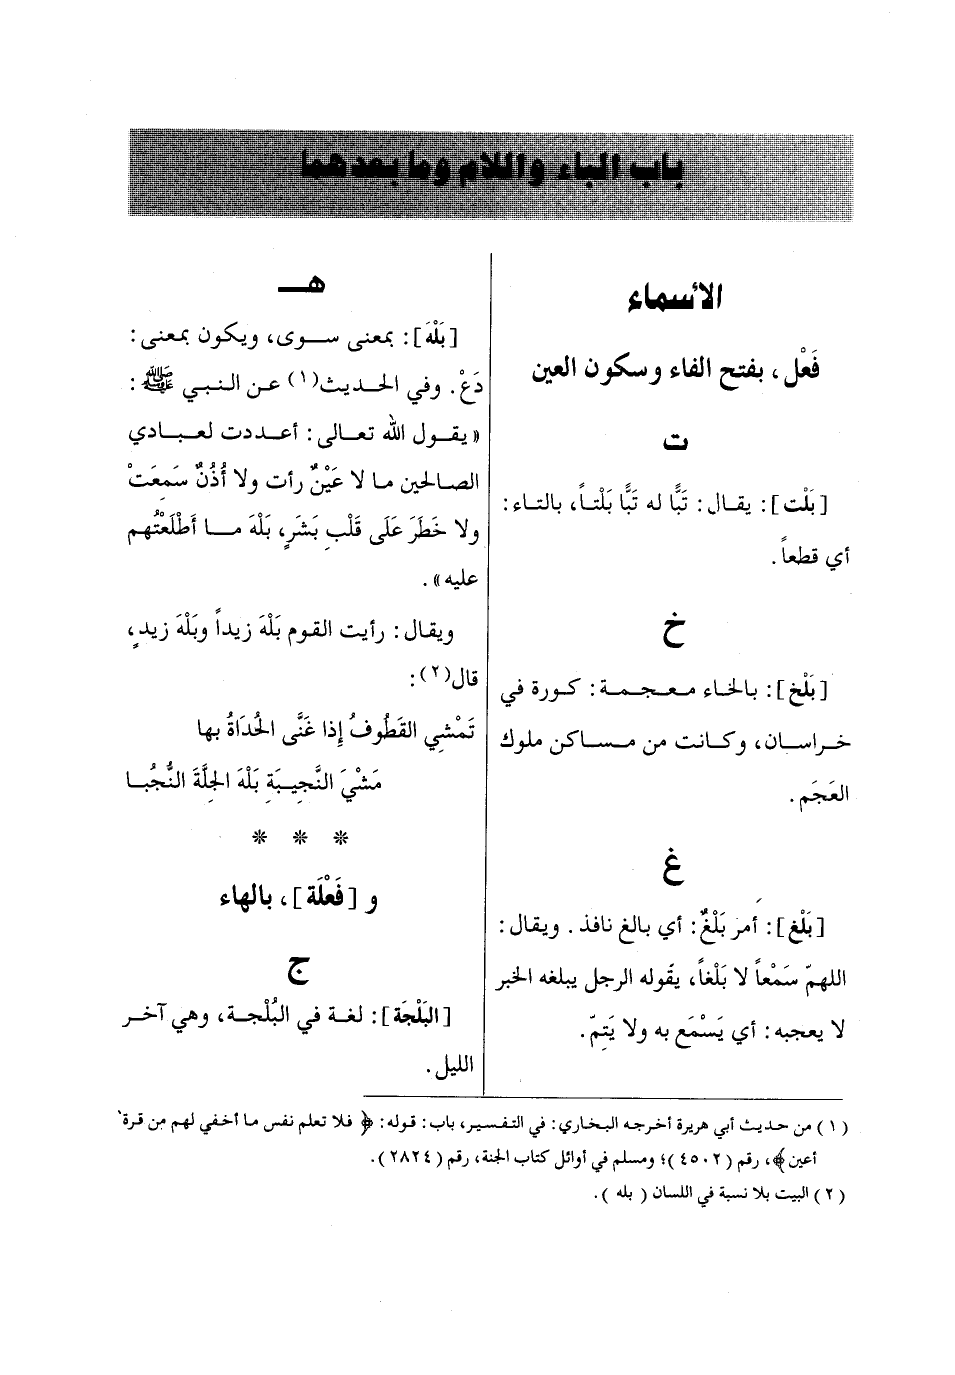 باب الباء واللام وما بعدهما
الأسماء
فَعْل، بفتح الفاء وسكون العين
ت
[بَلْت]: يقال: تَبًّا له تَبًّا بَلْتاً، بالتاء:
أي قطعاً.
خ
[بَلْخ]: بالخاء معجمة: كورة في
خراسان، وكانت من مساكن ملوك
العَجَم.
غ
[بَلْغ]: أمر بَلْغٌ: أي بالغ نافذ. ويقال:
اللهمّ سَمْعاً لا بَلْغاً، يقوله الرجل يبلغه الخبر
لا يعجبه: أي يَسْمَع به ولا يَتِمّ.
هـ
[بَلْهَ]: بمعنى سوى، ويكون بمعنى:
دَعْ. وفي الحديث(١) عن النبي ﷺ:
«يقول الله تعالى: أعددت لعبادي
الصالحين ما لا عَيْنٌ رأت ولا أُذُنٌ سَمِعَتْ
ولا خَطَرَ عَلَى قَلْبِ بَشَرٍ، بَلْهَ ما أَطْلَعْتُهم
عليه».
ويقال: رأيت القوم بَلْهَ زيداً وبَلْهَ زيدٍ،
قال(٢):
تَمْشي القَطُوفُ إِذا غَنَّى الحُدَاةُ بها
مَشْيَ النَّجِيبَةِ بَلْهَ الجِلَّةَ النُّجُبا
* * *
و [فَعْلَة]، بالهاء
ج
[البَلْجَة]: لغة في البُلْجة، وهي آخر
الليل.
(١) من حديث أبي هريرة أخرجه البخاري: في التفسير، باب: قوله: ﴿فلا تعلم نفس ما أخفي لهم من قرة
أعين﴾، رقم (٤٥٠٢)؛ ومسلم في أوائل كتاب الجنة، رقم (٢٨٢٤).
(٢) البيت بلا نسبة في اللسان (بله).